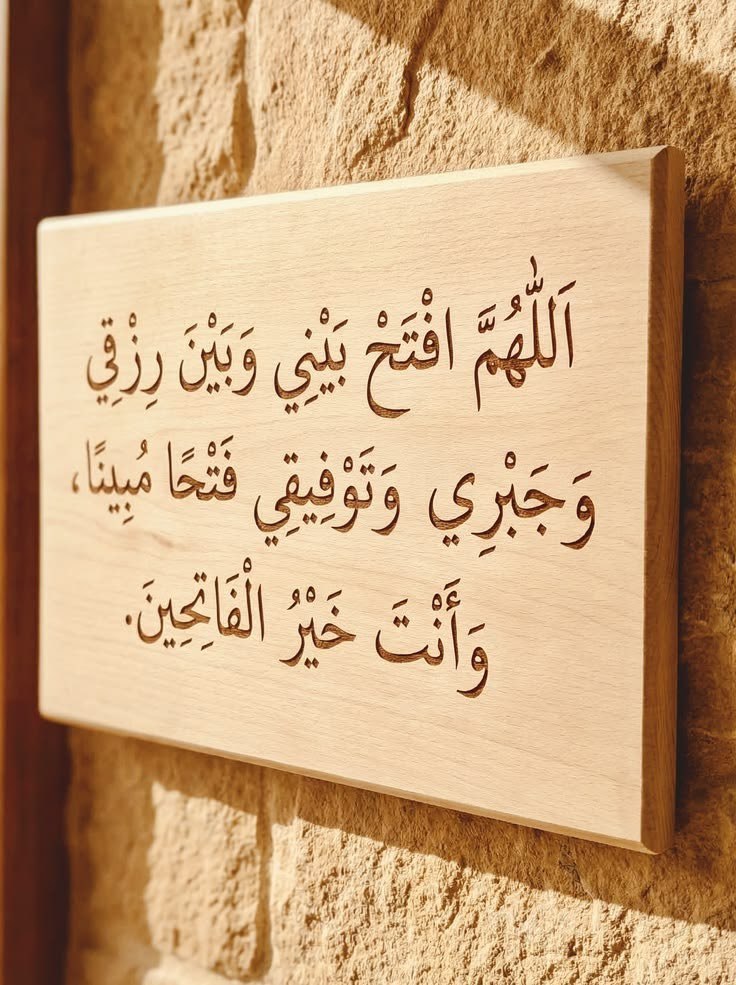 اَللّٰهُمَّ افْتَحْ بَيْنِي وَبَيْنَ رِزْقِي
وَجَبْرِي وَتَوْفِيقِي فَتْحًا مُبِينًا،
وَأَنْتَ خَيْرُ الْفَاتِحِينَ.